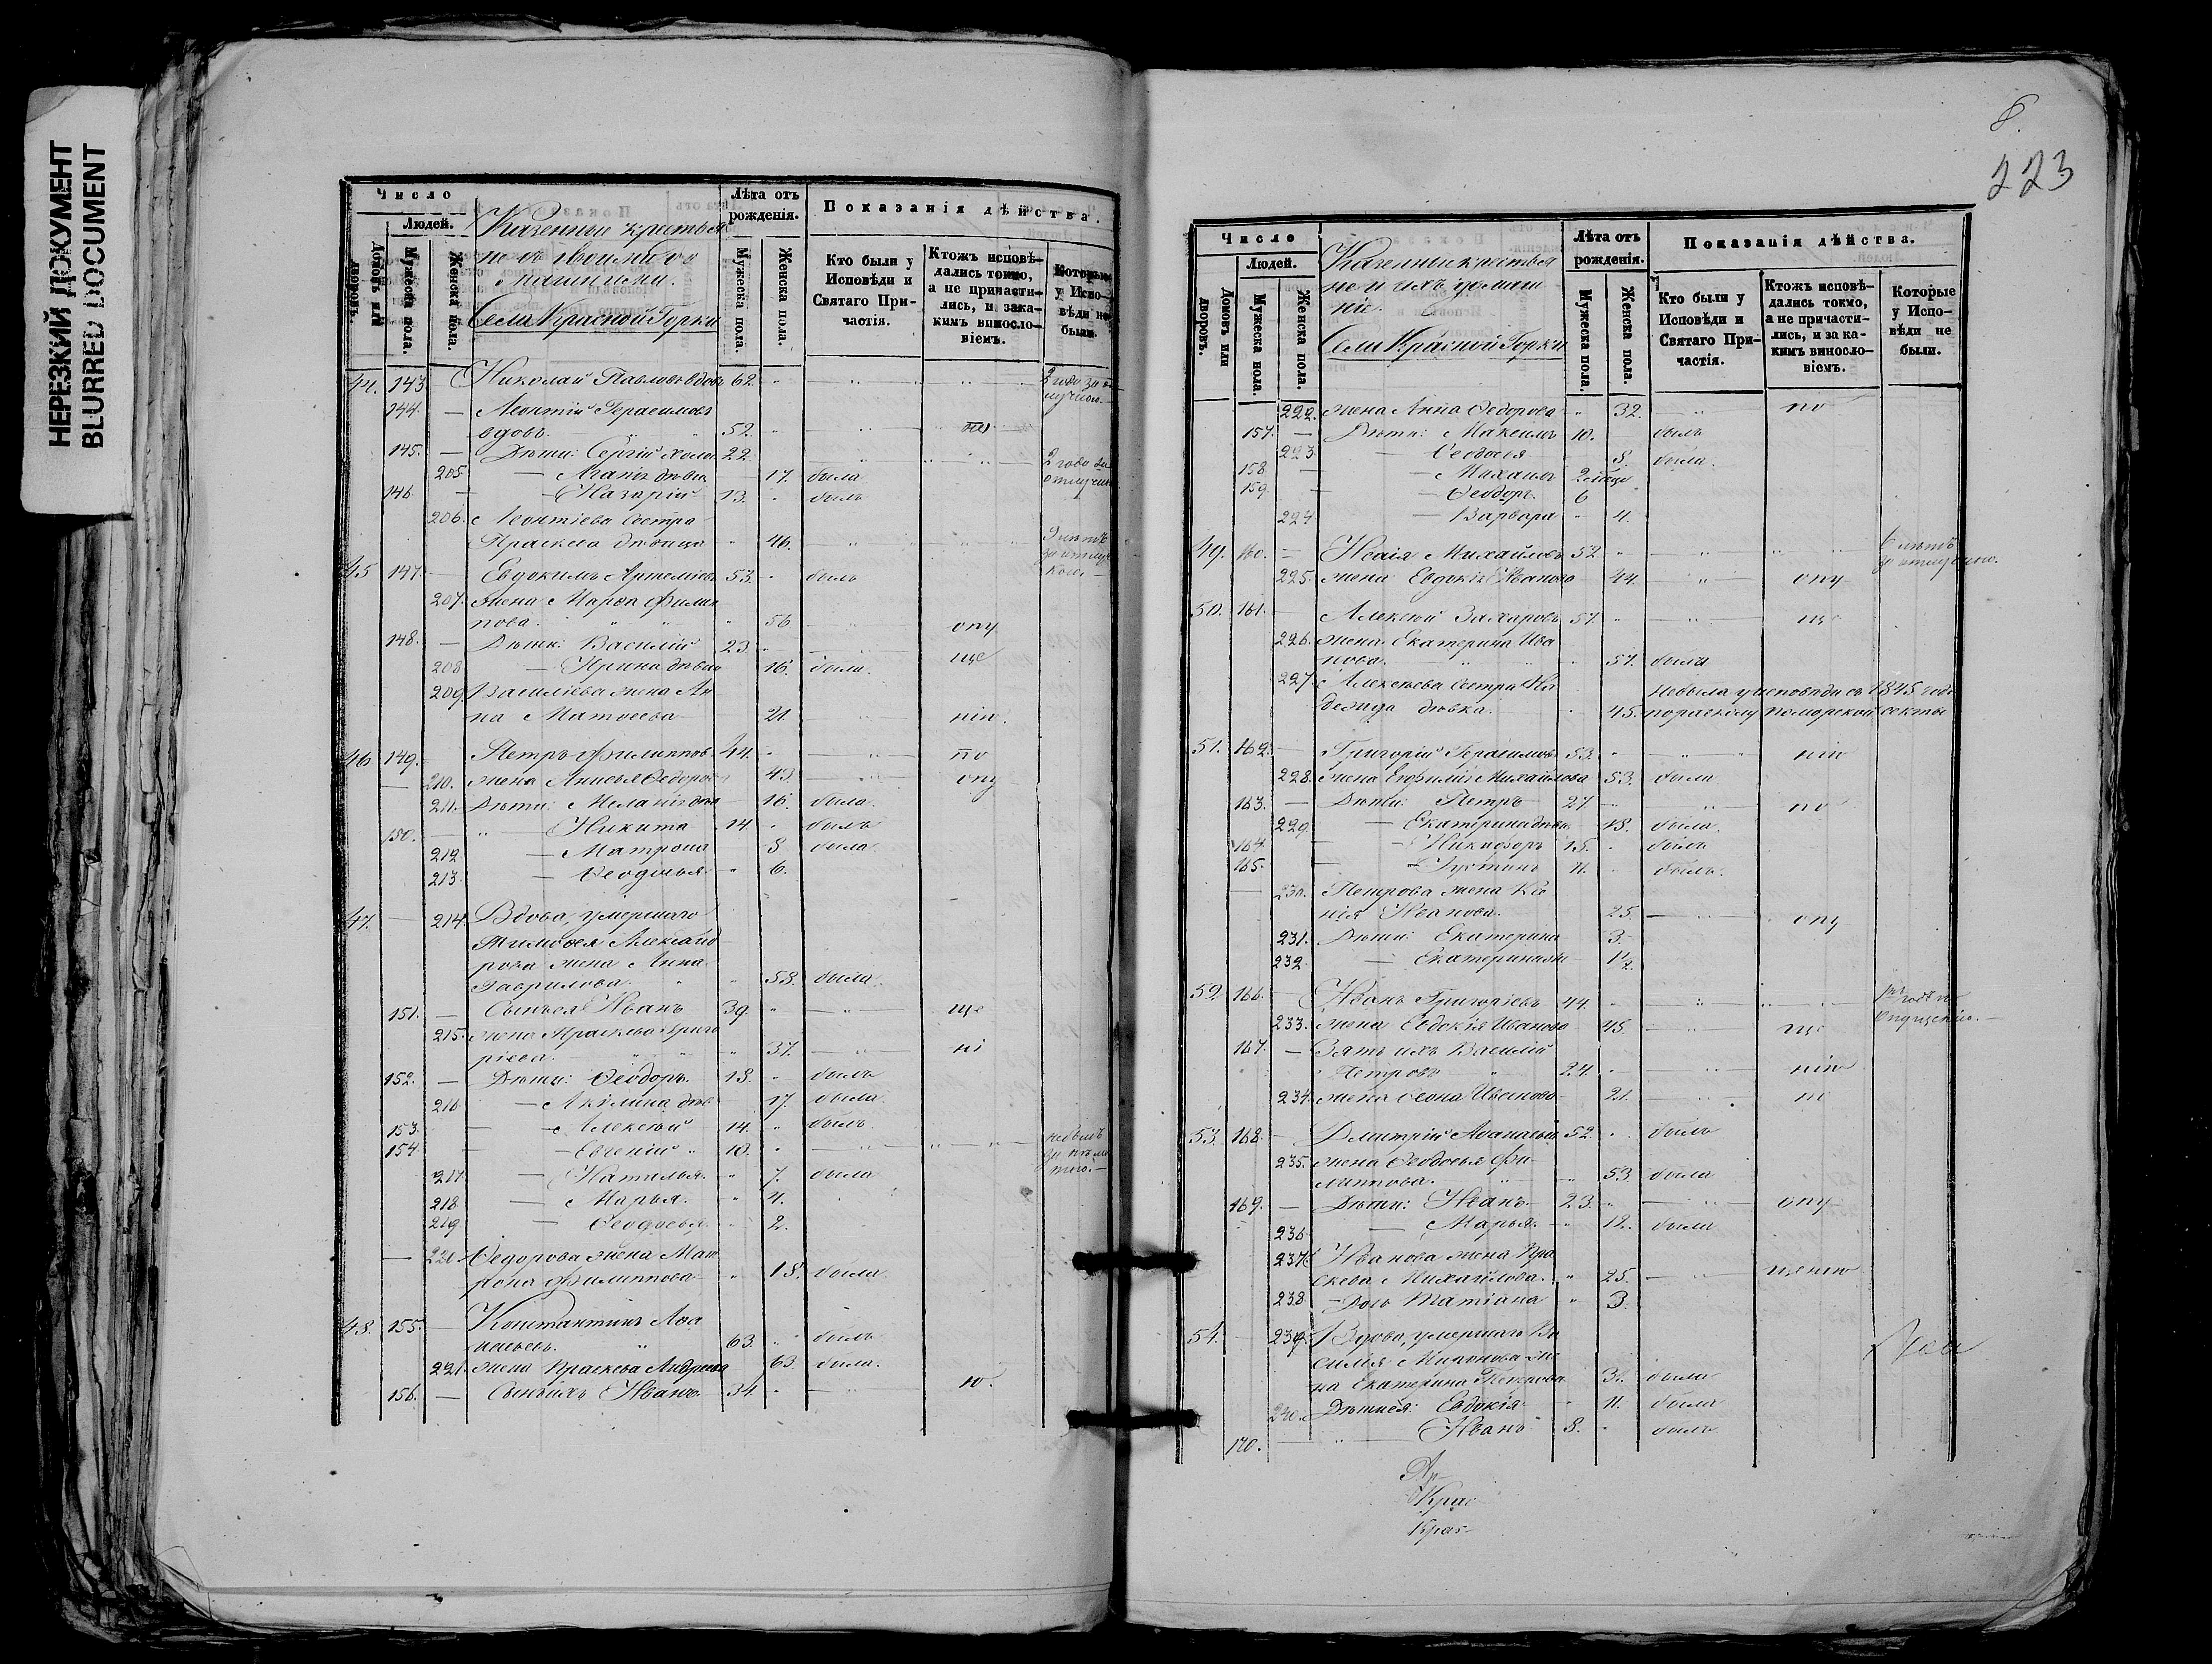 НЕРЕЗКИЙ ДОКУМЕНТ
BLURRED DOCUMENT
Число
Людей.
Домовъ или дворовъ.
Мужеска пола.
Женска пола.
Казенные крестья
не
Села Красной Горки
Лѣта отъ рожденія.
Мужеска пола.
Женска пола.
Показанія дѣйства.
Кто были у Исповѣди и Святаго Причастія.
Ктожъ исповѣдались токмо, а не причастились, и за какимъ винословіемъ.
Которые у Исповѣди не были.
44. 143. Николай Павловъ вдовъ 62.
144. — Леонтій Герасимовъ
вдовъ. 52.
145. — Дѣти: Сергій холос 22.
205 — Агапія дѣвица 17. была
146 — Назарій 13. былъ
206. Леонтіева Сестра
Праскева дѣвица 46.
45 147. — Евдокимъ Артеміевъ 53. былъ
207. жена Марѳа Филип
пова. 56. опу
148. — Дѣти: Василій 23. ще
208 — Ирина дѣвица 16. была
209. Василіева жена Ан
на Матвеева 21. нію.
46 149. Петръ Филипповъ 44. по
210. жена Анисья Ѳедорова 43. опу
211. Дѣти: Меланія дѣв 16. была
150. — Никита 14. былъ
212 — Матрона 8 была
213. — Ѳеодосья 6.
47. 214. Вдова, умершаго
Тимоѳея Александ
рова жена Анна
Гаврилова 58. была
151. — Сынъ ея Иванъ 39. ще
215. жена Праскева Григо
ріева. 37. ні
152. — Дѣти: Ѳеодоръ. 18. былъ
216 — Акилина дѣв 17. была
153. — Алексѣй 14. былъ
154. — Евгеній 10.
217. — Наталья. 7. была
218 — Марья. 4.
219 — Ѳеодосья. 2.
220. Ѳедорова жена Мат
рона Филиппова 18. была
48. 155. Константинъ Аѳа
насьевъ. 63. былъ
221. жена Праскева Андреева 63. была.
156. — Сынъ ихъ Иванъ. 34. ю.
8.
223
Число
Людей.
Домовъ или дворовъ.
Мужеска пола.
Женска пола.
Казенные крестья
не и ихъ домаш
ніе.
Села Красной Горки
Лѣта отъ рожденія.
Мужеска пола.
Женска пола.
Показанія дѣйства.
Кто были у Исповѣди и Святаго Причастія.
Ктожъ исповѣдались токмо, а не причастились, и за какимъ винословіемъ.
Которые у Исповѣди не были.
222. жена Анна Ѳедорова 32. по
157. — Дѣти: Максимъ 10. былъ
223 — Ѳеодосья 8. была.
158. — Михаилъ
159 — Ѳеодоръ. 6
224 — Варвара 4.
49. 160. — Исаія Михайловъ 52
225. жена Евдокія Иванова 44. опу
50. 161. Алексѣй Захаровъ 57. ще
226. жена Екатерина Ива
нова. 57. была
227. Алексѣева Сестра
дѣвка. 45. Небыла у исповѣди съ 1845 года
по расколу Поморской секты
51. 162. — Григорій Герасимовъ 53. нію
228. жена Евфимія Михайлова 53. была
163. — Дѣти: Петръ 27. по
229. — Екатерина дѣвка 18. была.
164. — Никифоръ 15. былъ
165. — Густинъ 11. былъ.
230. Петрова жена Ксе
нія Иванова. 25. опу
231. Дѣти: Екатерина 3.
232 — Екатерина
52 166. Иванъ Григоріевъ 44.
233. жена Евдокія Иванова 45. ще
167. — Зять ихъ Василій
Петровъ 24. нію
234. жена Иванова 21.
53. 168. — Дмитрій Аѳанасьевъ 52. былъ
235. жена Ѳеодосья Фи
липпова. 53 была
169. — Дѣти: Иванъ. 23. опу
236 — Марья. 12. была
237. Иванова жена Пра
скева Михайлова. 25. щенію
238 — Дочь Татіана 3.
54. 239. Вдова, умершаго Ва
силія Миронова же
на Екатерина Петрова 3 . была
240. Дѣти ея: Евдокія 11. была
170. — Иванъ 8. былъ
Ар
Крас
Крас